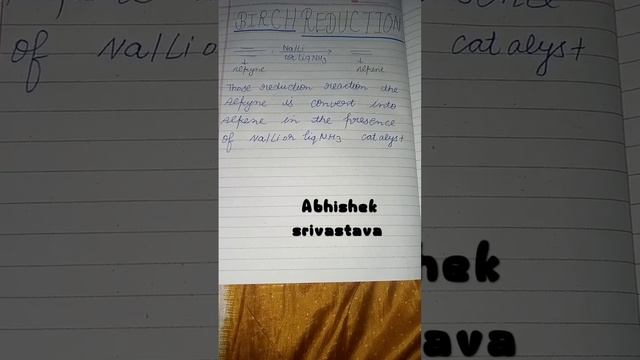 BIRCH REDUCTION
Na/Li
or liq NH3
Alkyne
Alkene
Those reduction reaction the
Alkyne is convert into
Alkene in the presence
of Na/Li or liq NH3 catalyst
Abhishek
srivastava
of Na/Li o
catalyst
hek
ava